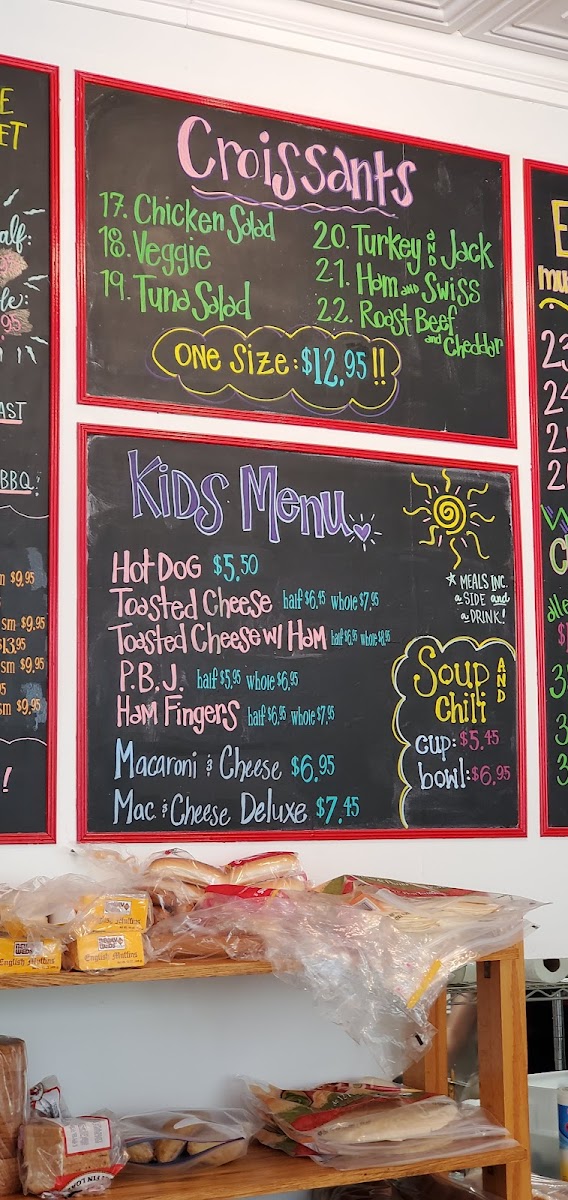 Croissants
17. Chicken Salad
18. Veggie
19. Tuna Salad
20. Turkey AND Jack
21. Ham AND Swiss
22. Roast Beef
and Cheddar
ONE SiZe: $12.95 !!
KiDS Menu
Hot DOG $5.50
Toasted Cheese half $6.45 whole $7.95
Toasted Cheese w/ Ham half $6.95 whole $8.95
P.B.J. half $5.95 whole $6.95
Ham Fingers half $6.95 whole $7.95
Macaroni & Cheese $6.95
Mac & Cheese Deluxe $7.45
* MEALS INC.
a SIDE and
a DRINK!
Soup AND
Chili
cup: $5.45
bowl: $6.95
E
ET
alf:
le:
95
AST
BBQ!
m $9.95
sm $9.95
$13.95
sm $9.95
95
sm $9.95
!
E
mu
23
24
2
2
C
$1
3
3
3
English Muffins
English Muffins